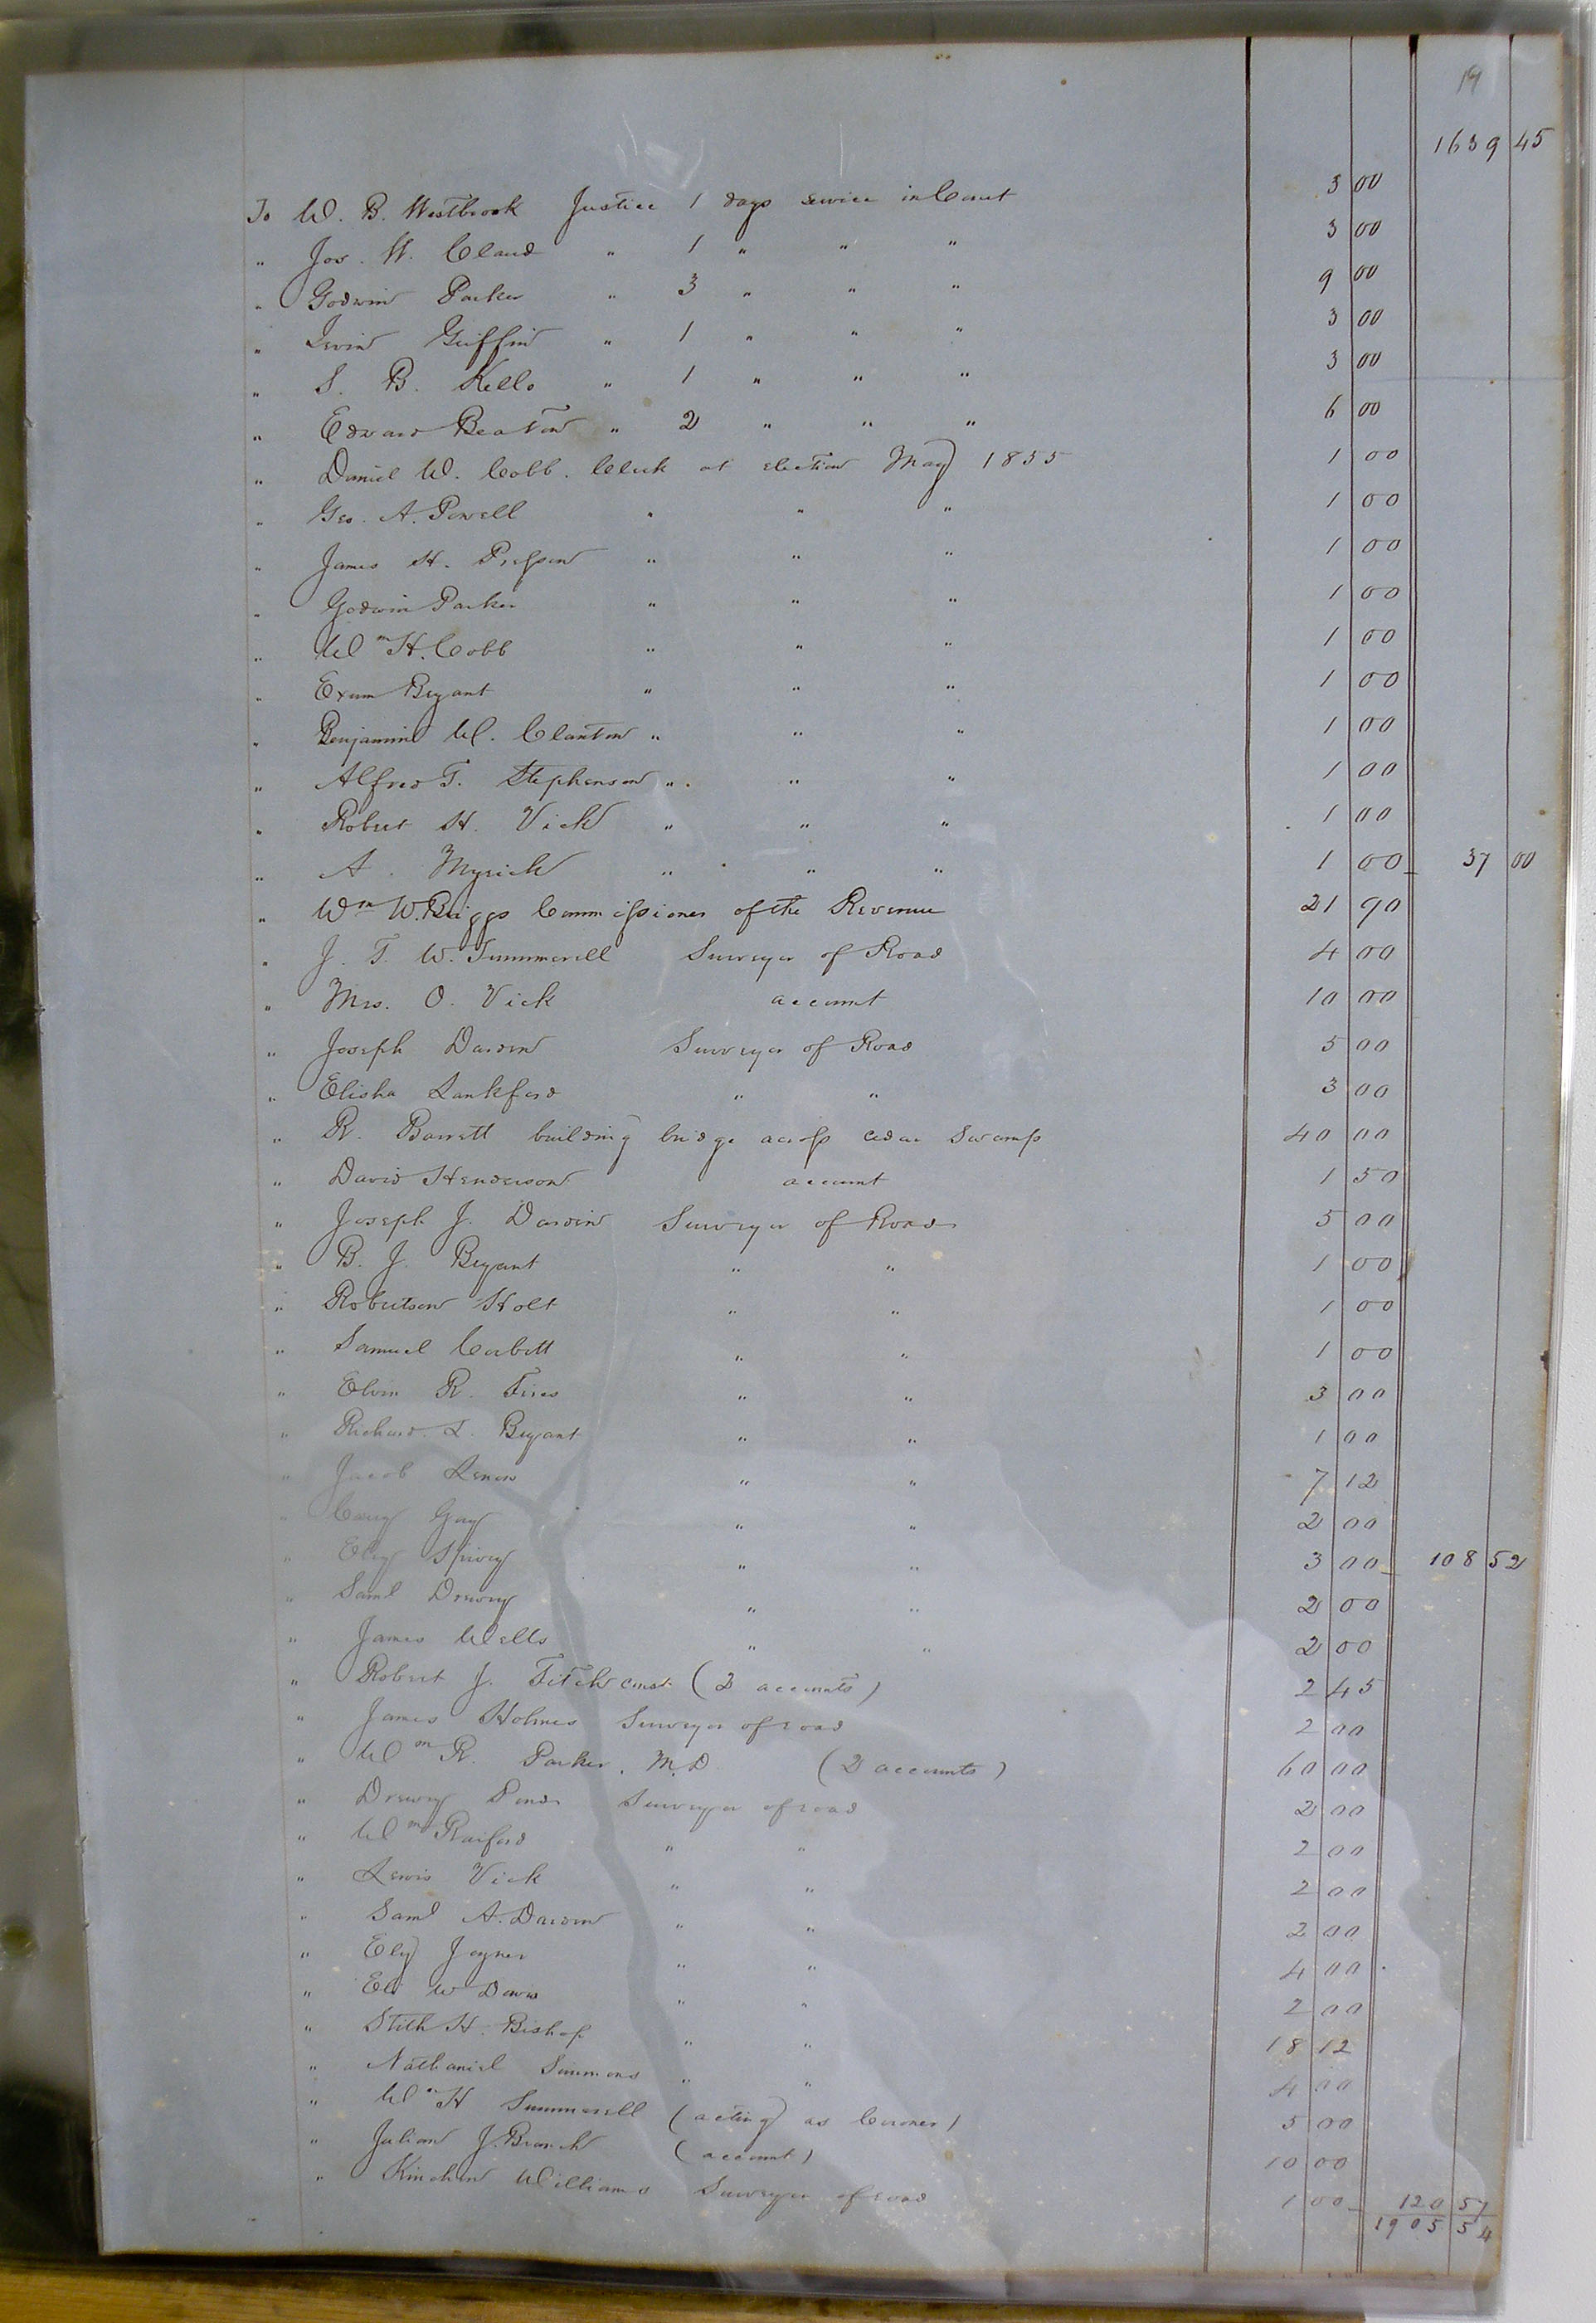 19
1639 45
To W. B. Westbrook Justice 1 days service in Court 3 00
" Jos. W. Claud " 1 " " " 3 00
" Godwin Parker " 3 " " " 9 00
" Irvin Griffin " 1 " " " 3 00
" S. B. Kello " 1 " " " 3 00
" Edward Beaton " 2 " " " 6 00
" Daniel W. Cobb. Clerk at election May 1855 1 00
" Geo. A. Powell " " " 1 00
" James H. Presson " " " 1 00
" Godwin Parker " " " 1 00
" Wm H. Cobb " " " 1 00
" Exum Bryant " " " 1 00
" Benjamin W. Clanton " " " 1 00
" Alfred T. Stephenson " " " 1 00
" Robert H. Vick " " " 1 00
" A. Myrick " " " 1 00 37 00
" Wm W. Briggs Commissioner of the Revenue 21 90
" J. T. W. Summerell Surveyor of Road 4 00
" Mrs. O. Vick account 10 00
" Joseph Darden Surveyor of Road 5 00
" Elisha Lankford " " 3 00
" R. Barrett building bridge across cedar Swamp 40 00
" David Henderson account 1 50
" Joseph J. Darden Surveyor of Road 5 00
" B. J. Bryant " " 1 00
" Robertson Holt " " 1 00
" Samuel Corbitt " " 1 00
" Elvin R. " " 3 00
" Richard L. Bryant " " 1 00
" Jacob " " 7 12
" Gay " " 2 00
" Ely Spivey " " 3 00 108 52
" Saml Drewry " " 2 00
" James Wells " " 2 00
" Robert J. Fitch const. (2 accounts) 2 45
" James Holmes Surveyor of road 2 00
" Wm R. Parker. M.D. (2 accounts) 60 00
" Drewry Pond Surveyor of road 2 00
" Wm Raiford " " 2 00
" Lewis Vick " " 2 00
" Saml A. Darden " " 2 00
" Ely Joyner " " 4 00
" Eli W Davis " " 2 00
" Stith H. Bishop " " 18 12
" Nathaniel Simmons " " 4 00
" Wm H Summerell (acting as Coroner) 5 00
" Julian J. Branch (account) 10 00
" Kinchen Williams Surveyor of road 1 00 120 57
1905 54